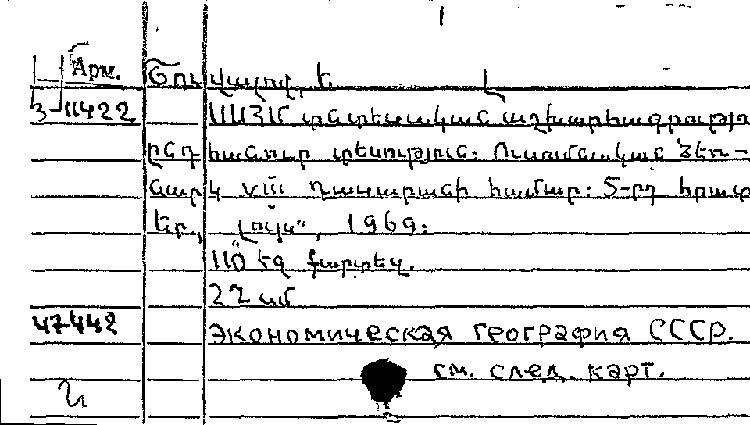 Арм. Շուվալով, Ե.
3-11422 ՍՍՀՄ տնտեսական աշխարհագրությո
ընդհանուր տեսություն: Ուսումնական ձեռ-
նարկ VIII դասարանի համար: 5-րդ հրատ
Եր., „Լույս", 1969:
110 էջ քարտեզ.
22 սմ
47442 Экономическая география СССР.
см. след. карт.